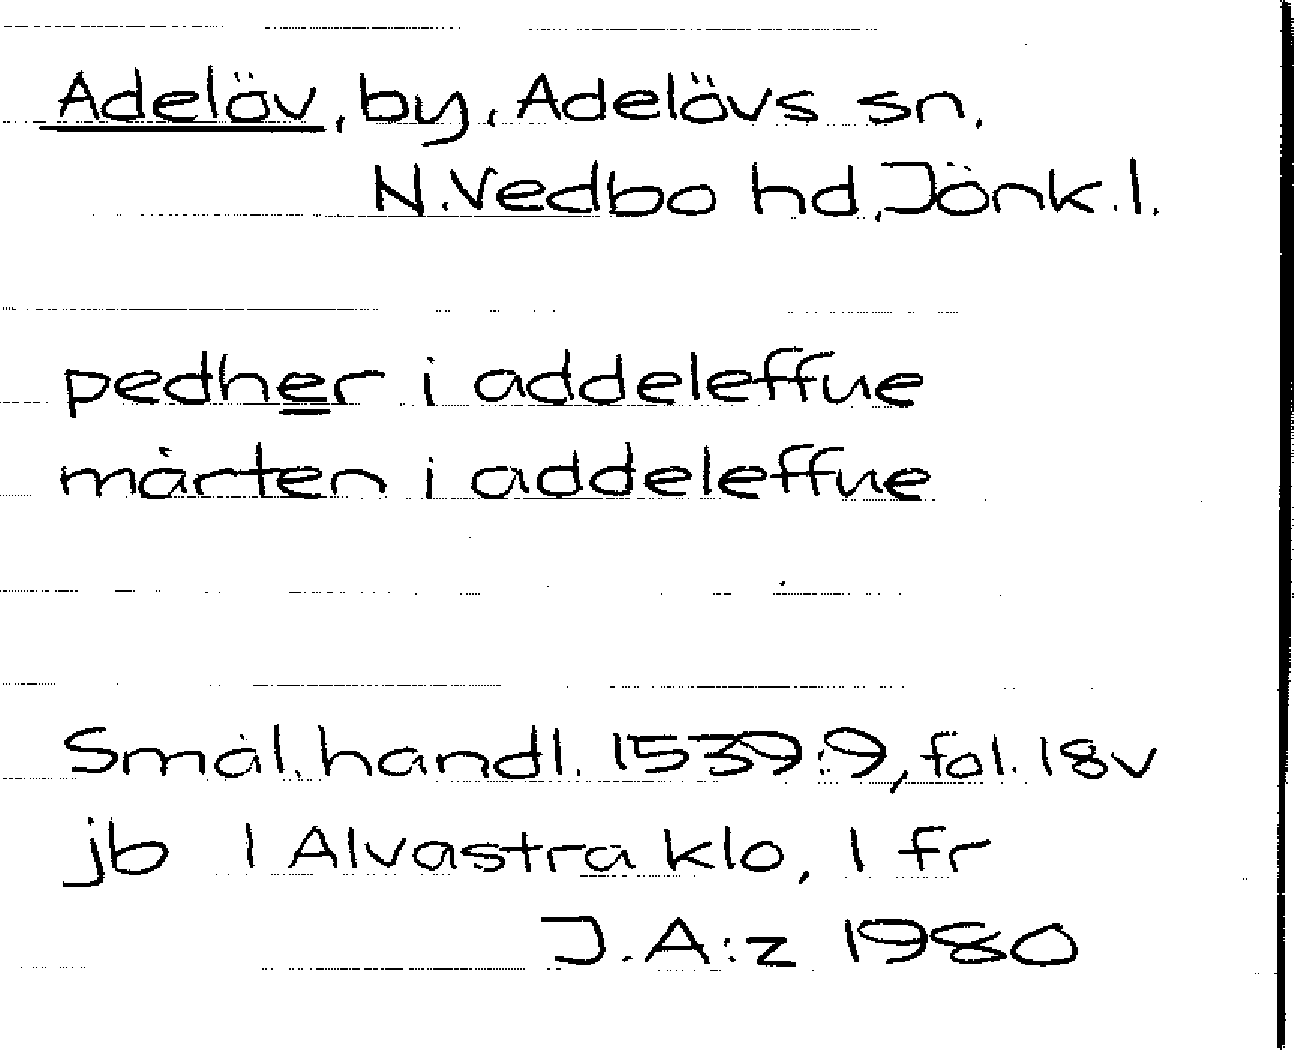 Adelöv, by, Adelövs sn.
N.Vedbo hd, Jönk.l.
pedher i addeleffue
mårten i addeleffue
Smål. handl. 1539:9, fol. 18v
jb 1 Alvastra klo, 1 fr
J.A:z 1980